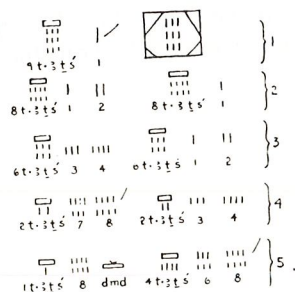 9 t·3 ṯ ś 1 1
8 t·3 ṯ ś 1 2 8 t·3 ṯ ś 1 2
6 t·3 ṯ ś 3 4 t·3 ṯ ś 1 2 3
2 t·3 ṯ ś 7 8 2 t·3 ṯ ś 3 4 4
1 t·3 ṯ ś 8 dmd 4 t·3 ṯ ś 6 8 5.